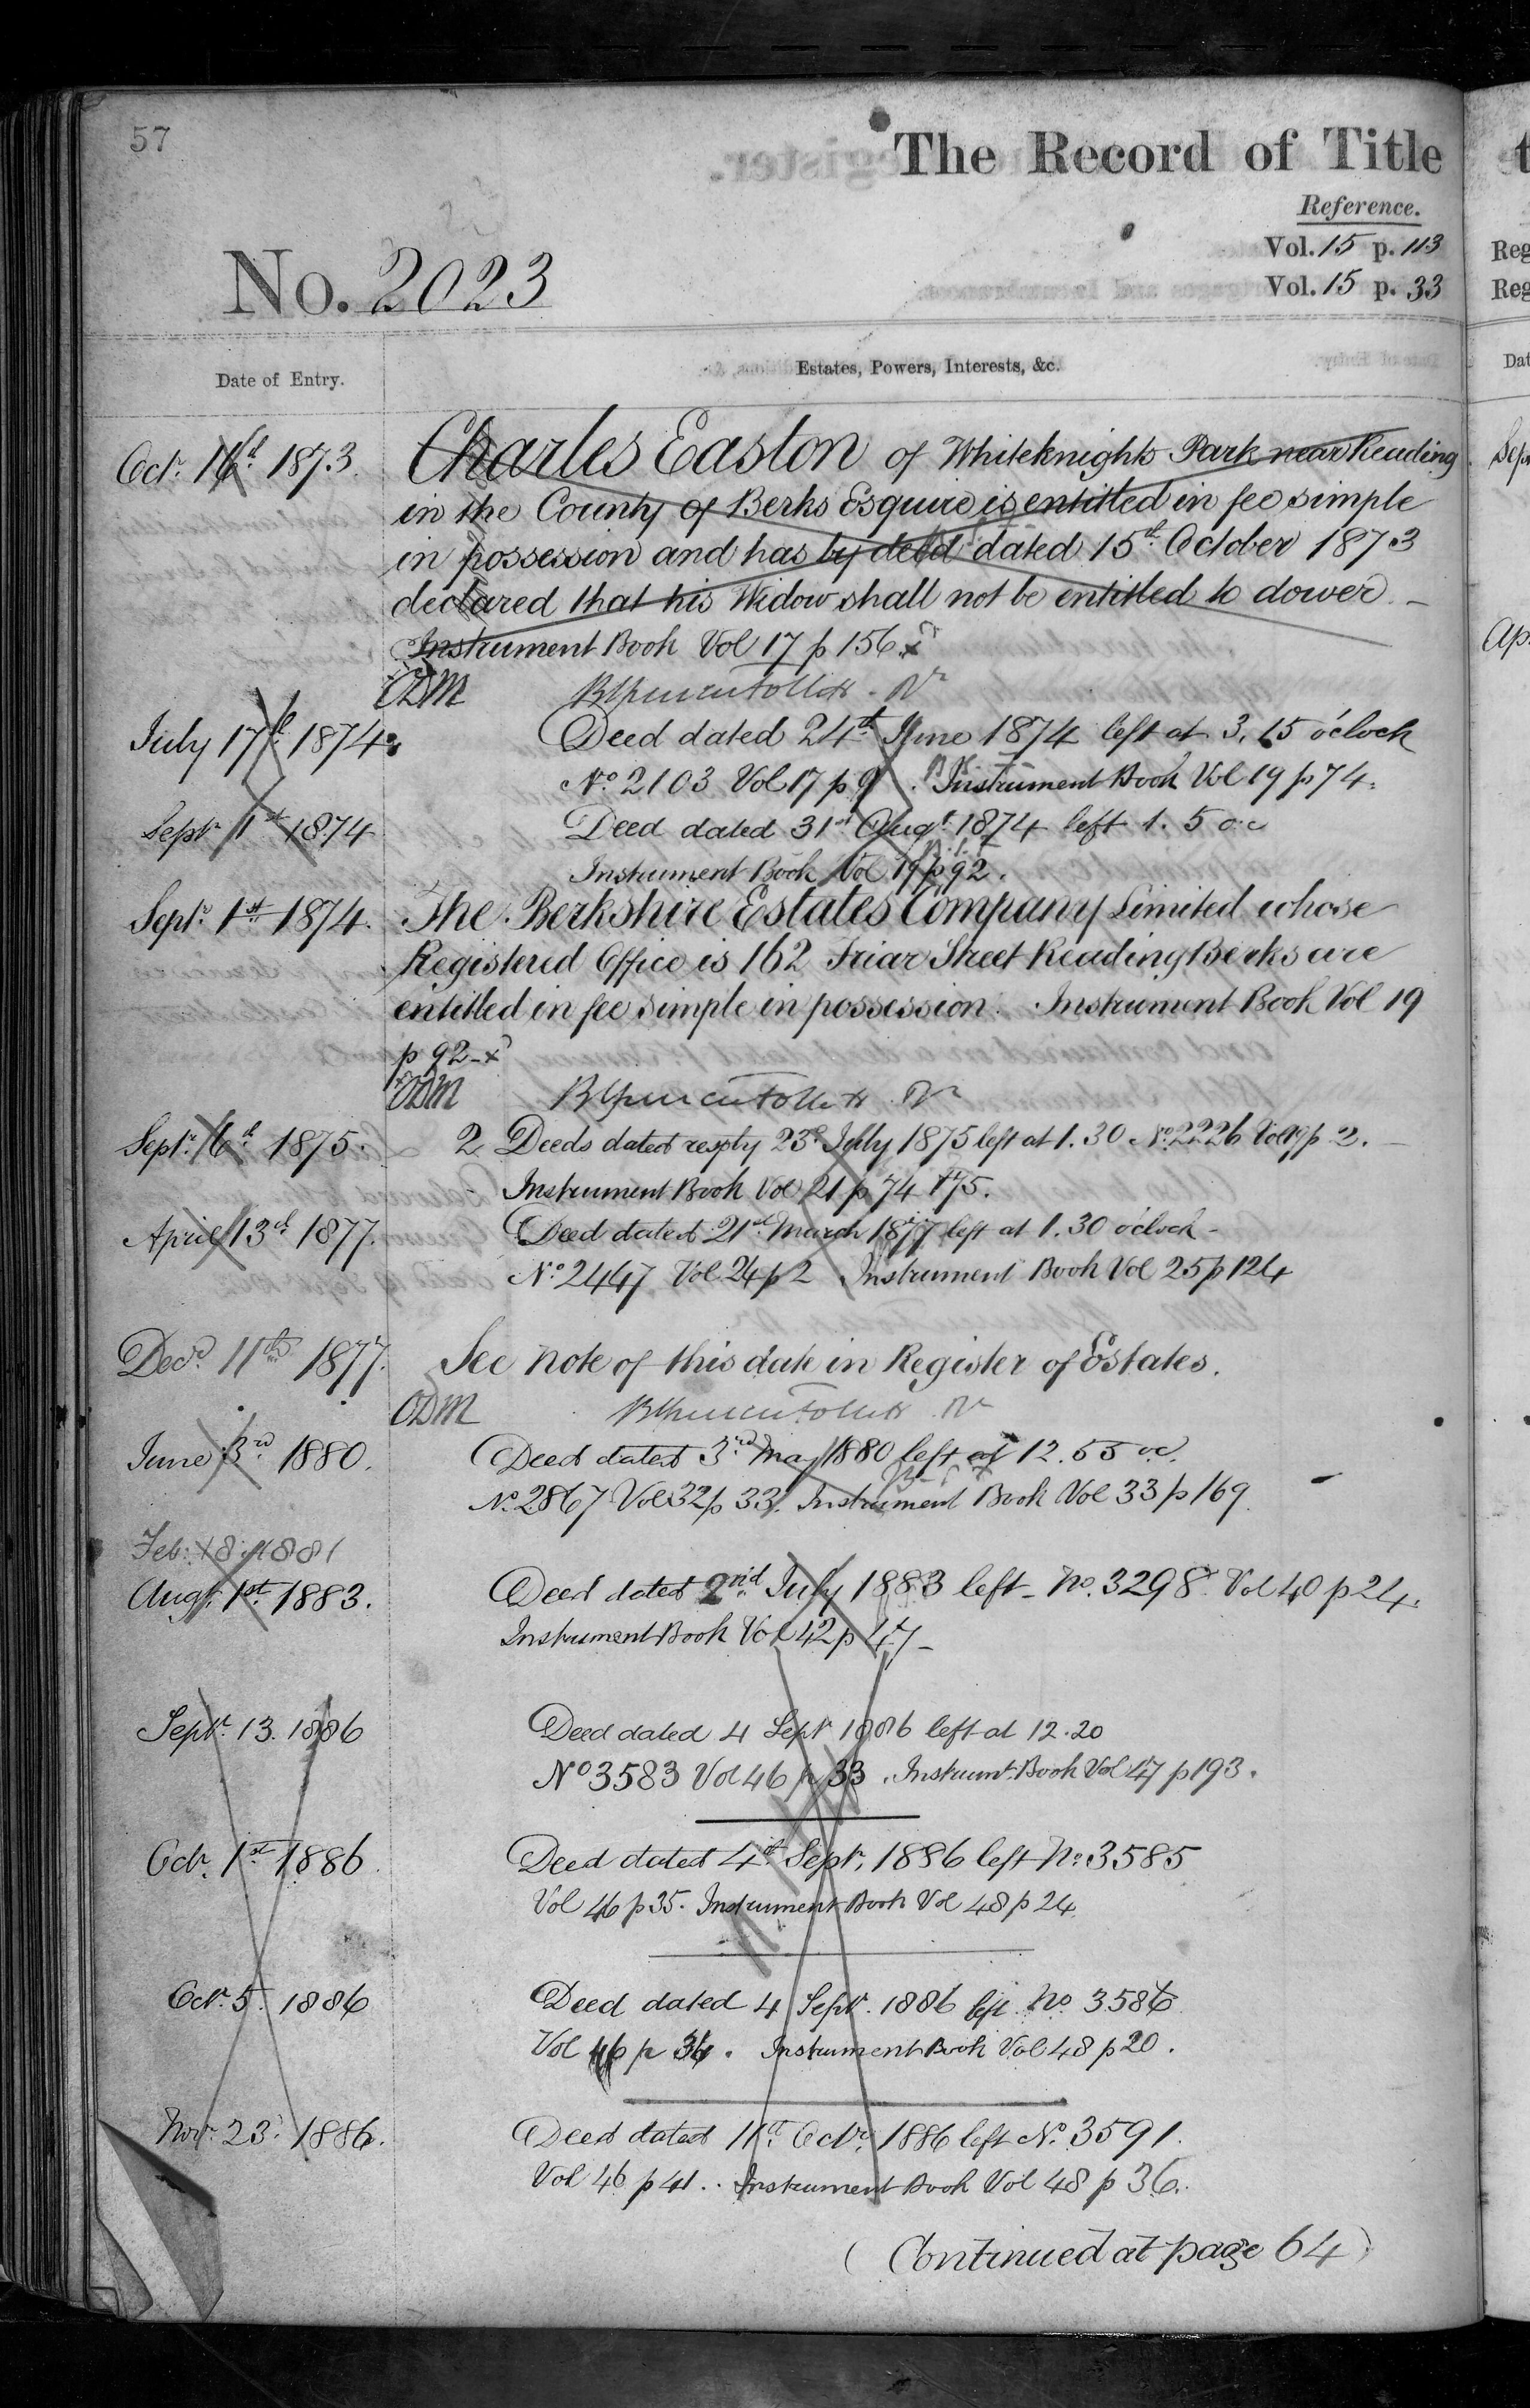 57
The Record of Title
Reference.
Vol. 15 p. 113
Vol. 15 p. 33
No. 2023
Date of Entry.
Estates, Powers, Interests, &c.
Octr. 16th 1873. Charles Easton of Whiteknights Park near Reading
in the County of Berks Esquire is entitled in fee simple
in possession and has by deed dated 15th October 1873
declared that his Widow shall not be entitled to dower. —
Instrument Book Vol 17 p 156.
ODM
July 17th 1874. Deed dated 24th June 1874 left at 3.15 o'clock
No. 2103 Vol 17 p 9. Instrument Book Vol 19 p 74.
Septr 1st 1874 Deed dated 31st Augt. 1874 left 1.5 o.c
Instrument Book Vol 19 p 92.
Septr. 1st 1874. The Berkshire Estates Company Limited whose
Registered Office is 162 Friar Street Reading Berks are
entitled in fee simple in possession. Instrument Book Vol 19
p 92
ODM
Septr. 6th 1875. 2 Deeds dated resply 23d July 1875 left at 1.30 No. 2226 Vol 19 p 2. —
Instrument Book Vol 21 p 74 & 75.
April 13th 1877. Deed dated 21st March 1877 left at 1.30 o'clock -
No. 2447 Vol 24 p 2 Instrument Book Vol 25 p 124
Decr. 11th 1877. See note of this date in Register of Estates.
ODM
June 3rd 1880. Deed dated 3rd May 1880 left at 12.55 o.c.
No. 2867 Vol 32 p 33. Instrument Book Vol 33 p 169.
Feb: 18. 1881
Augt. 1st 1883. Deed dated 2nd July 1883 left - No. 3298 Vol 40 p 24.
Instrument Book Vol 42 p 47 -
Septr. 13. 1886 Deed dated 4 Septr 1886 left at 12.20
No 3583 Vol 46 p 33. Instrumt. Book Vol 47 p 193.
Octr. 1st 1886. Deed dated 4th Septr. 1886 left No. 3585
Vol 46 p 35. Instrument Book Vol 48 p 24.
Octr. 5. 1886 Deed dated 4 Septr. 1886 left No. 3586
Vol 46 p 36. Instrument Book Vol 48 p 20.
Novr. 23. 1886. Deed dated 11th Octr. 1886 left No. 3591.
Vol 46 p 41. Instrument Book Vol 48 p 36.
(Continued at page 64)